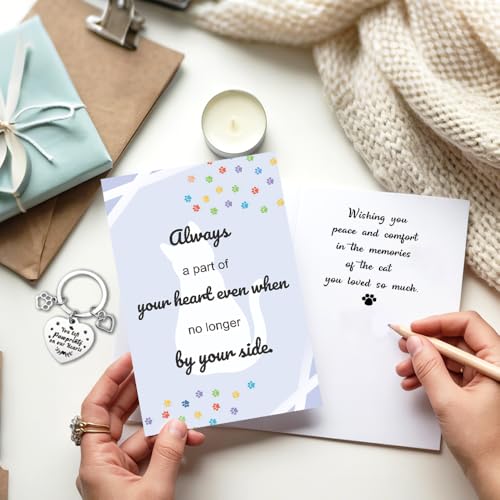 Always
a part of
your heart even when
no longer
by your side.
Wishing you
peace and comfort
in the memories
of the cat
you loved so much.
You left
Pawprints
on our Hearts